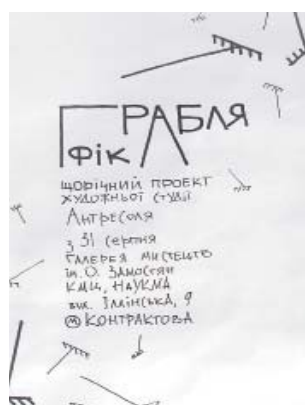 ГРАБЛЯ
ФІК
ЩОРІЧНИЙ ПРОЕКТ
ХУДОЖНЬОЇ СТУДІЇ
Антресоля
з 31 серпня
ГАЛЕРЕЯ МИСТЕЦТВ
ім. О. ЗАМОСТЯН
КМЦ, НаУКМА
вул. ІЛЛІНСЬКА, 9
М КОНТРАКТОВА